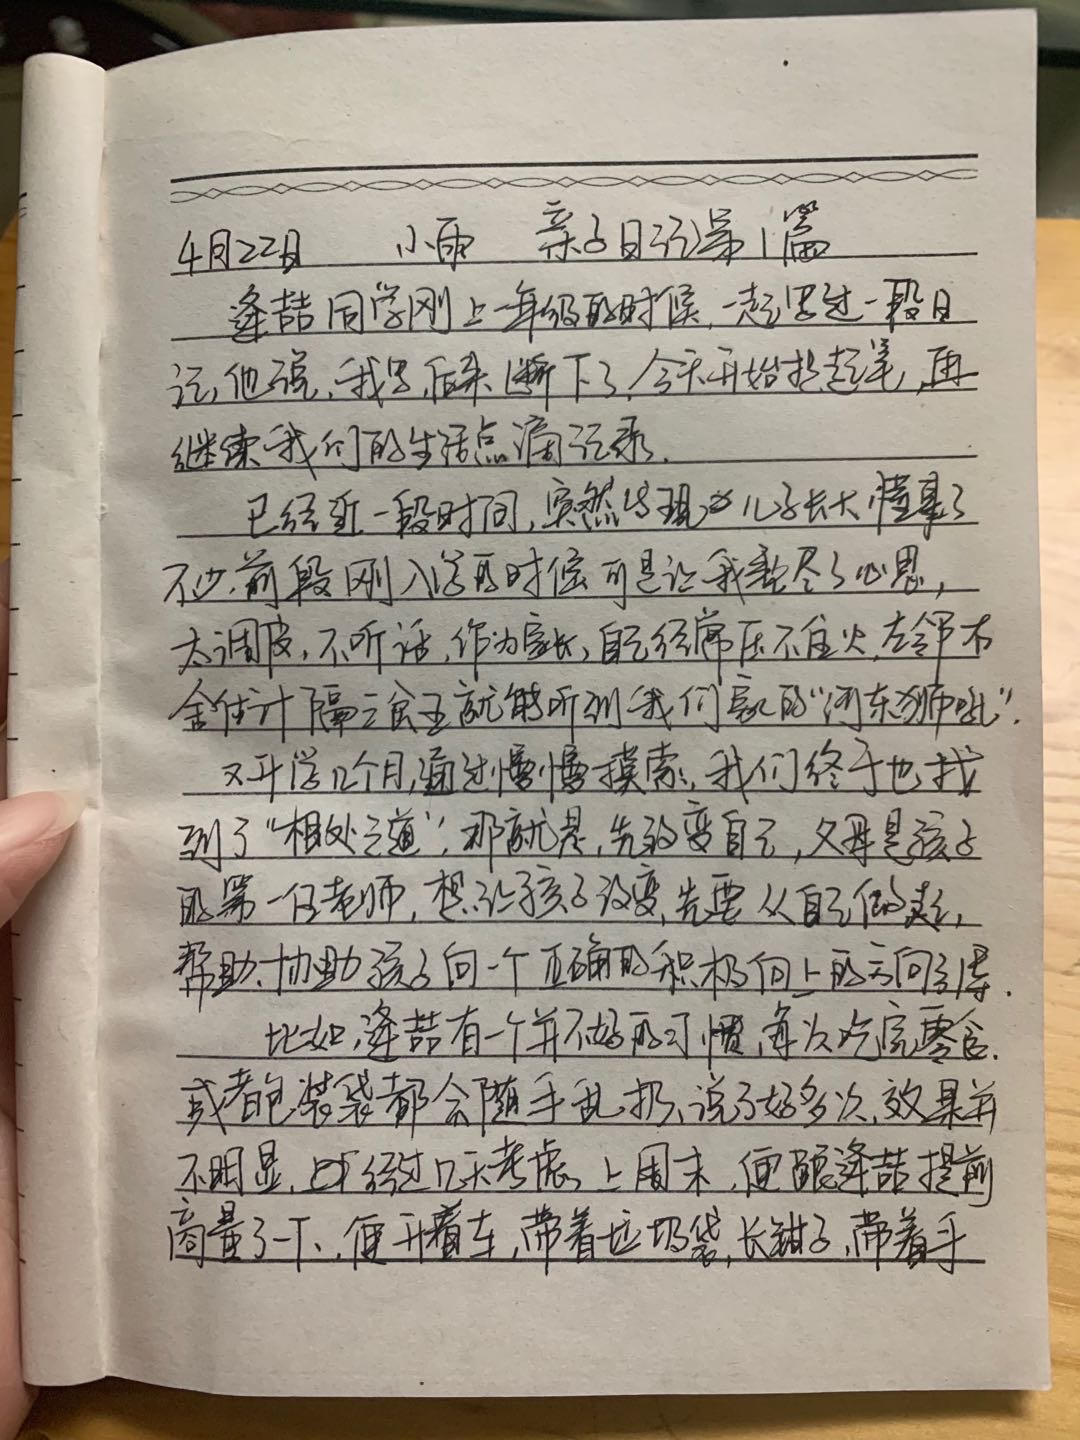 4月22日 小雨 亲子日记第1篇
逄喆同学刚上一年级的时候，一起写过一段日
记，他说，我写，后来断下了，今天开始执起笔，再
继续我们的生活点滴记录.
已经近一段时间，突然发现儿子长大懂事了
不少，前段刚入学的时候可是让我熬尽了心思，
太调皮，不听话，作为家长，自己经常压不住火，左邻右
舍估计隔三岔五就能听到我们家的"河东狮吼".
又开学几个月，通过慢慢摸索，我们终于也找
到了"相处之道"，那就是，先改变自己，父母是孩子
的第一任老师，想让孩子改变，先要从自己做起，
帮助、协助孩子向一个正确的积极向上的方向引导.
比如，逄喆有一个并不好的习惯，每次吃完零食.
或者包装袋都会随手乱扔，说了好多次，效果并
不明显，经过几天考虑，上周末，便跟逄喆提前
商量了一下，便开着车，带着垃圾袋，长钳子，带着手